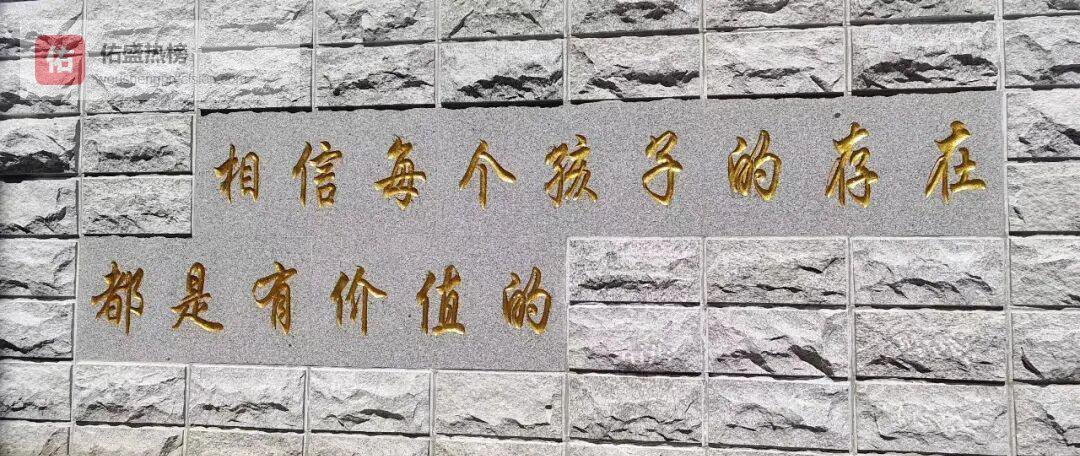 佑
佑盛热榜
相信每个孩子的存在
都是有价值的